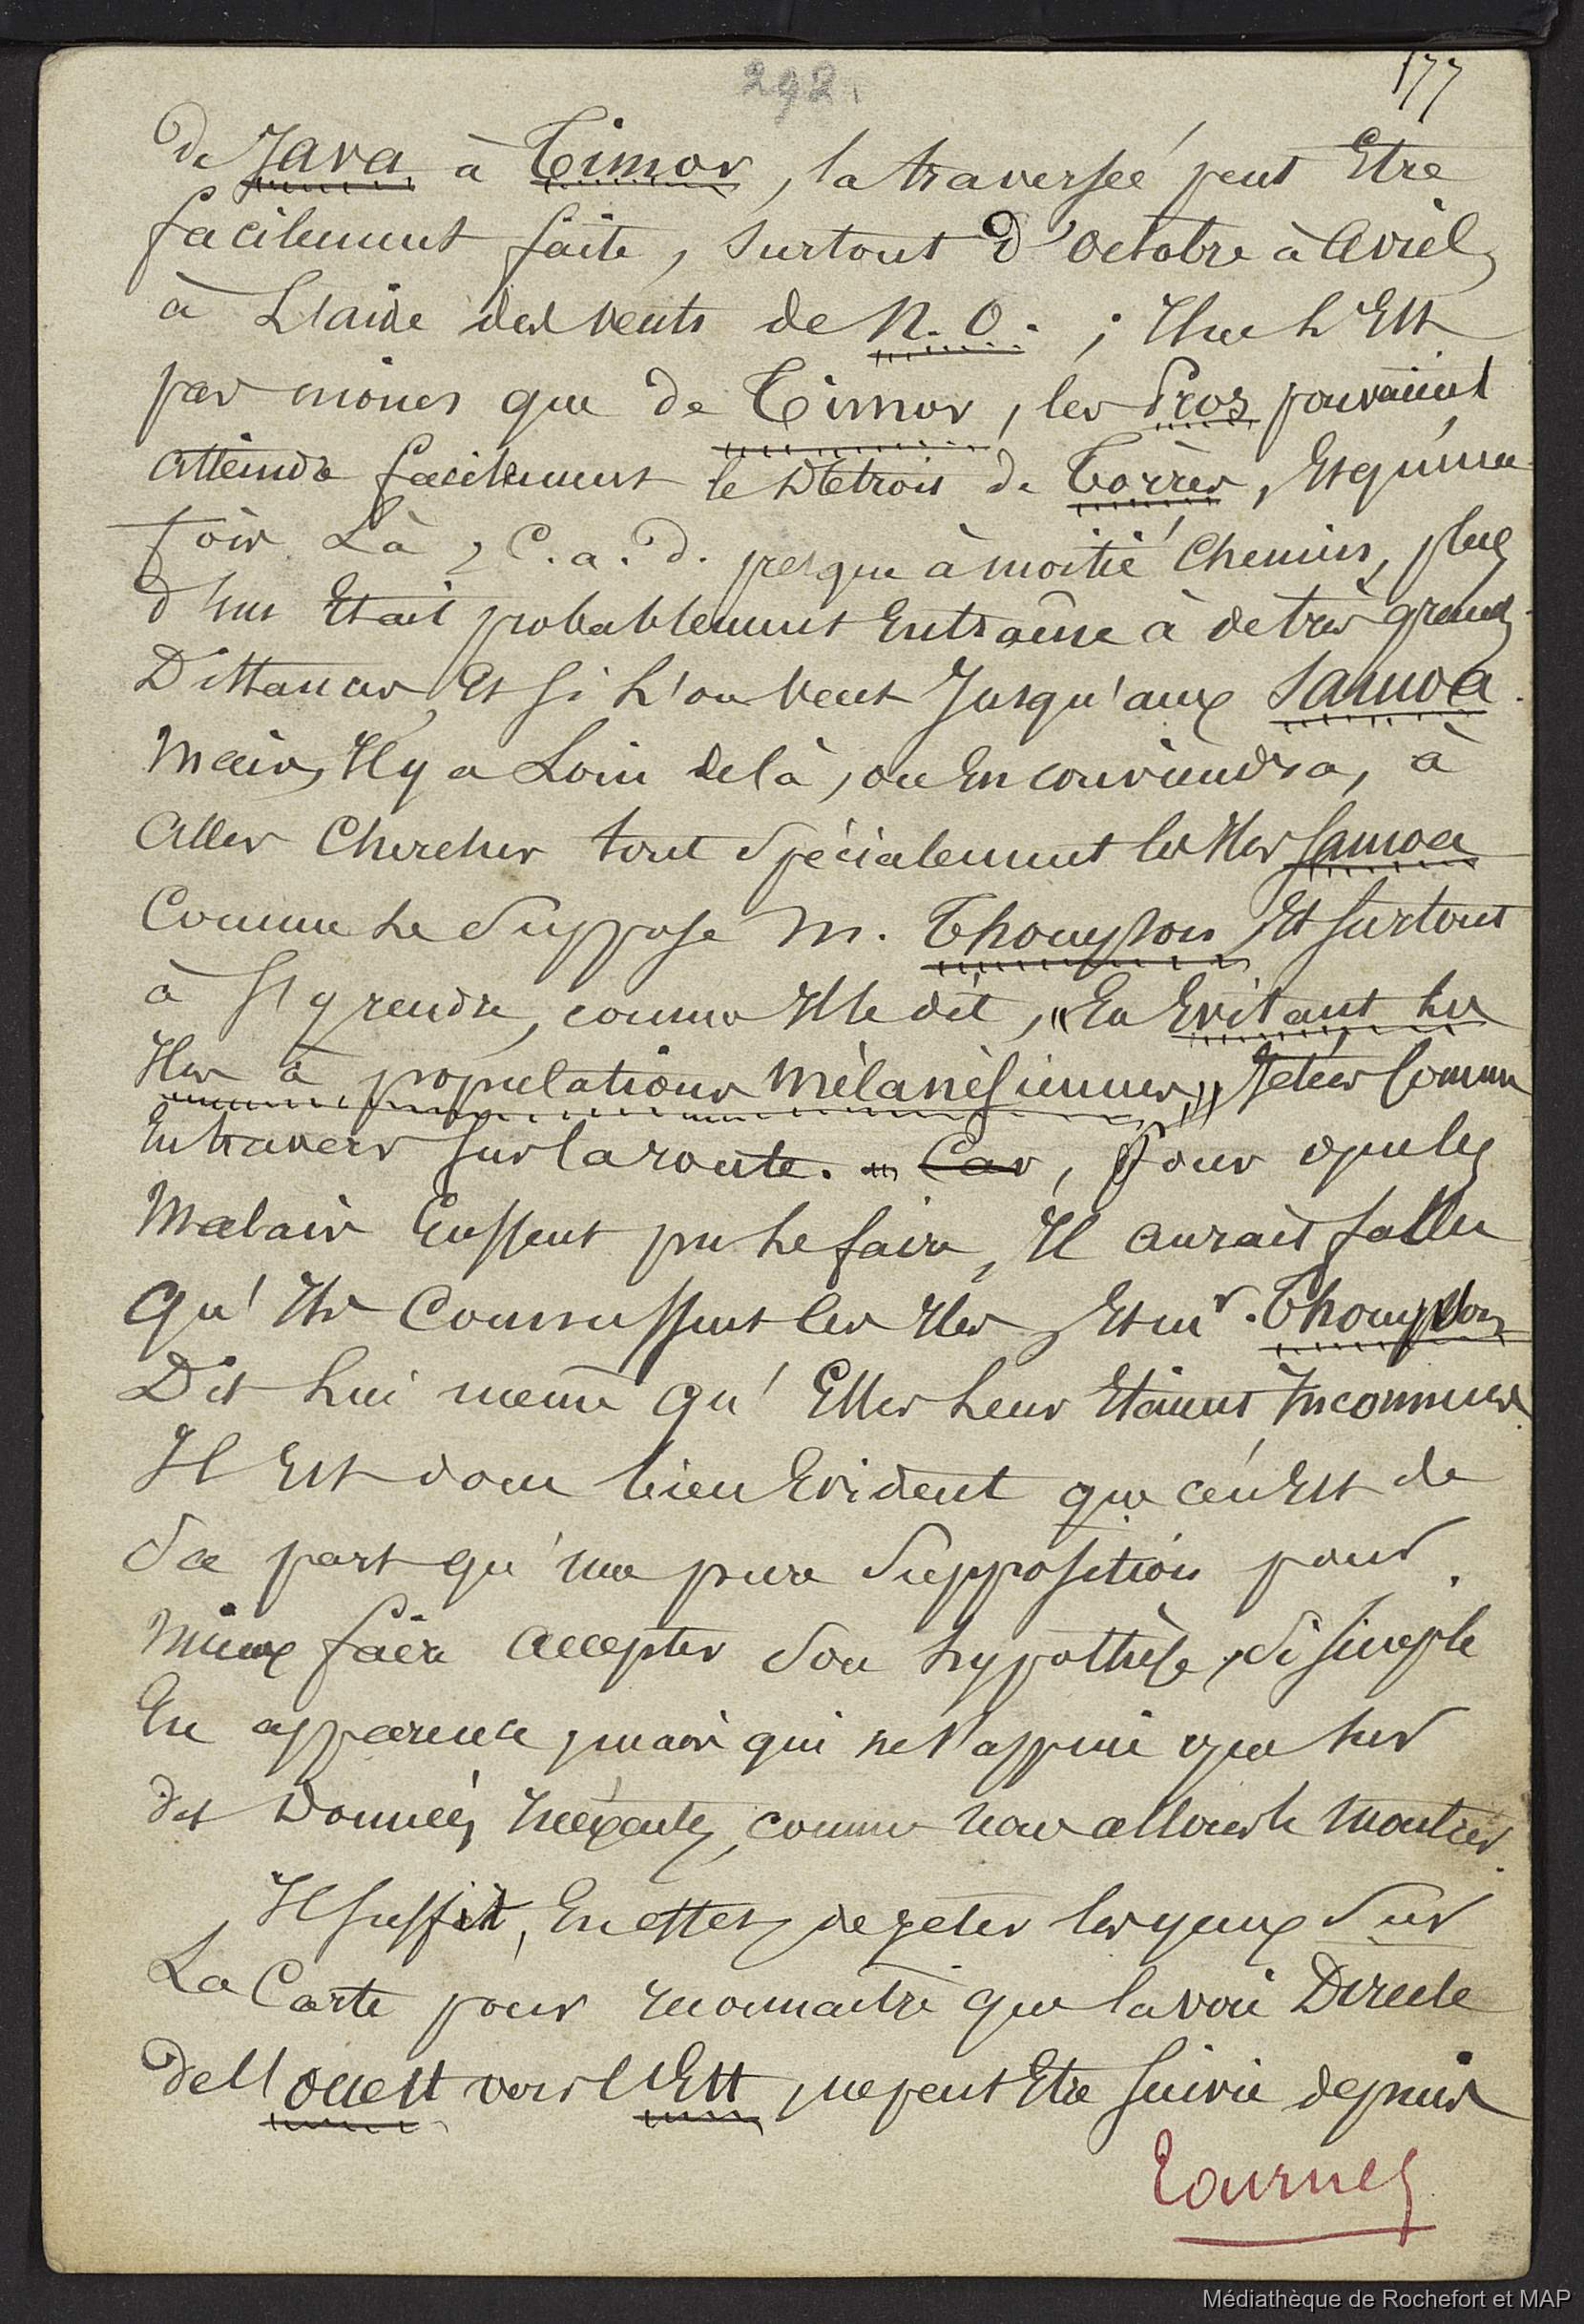 292.
177
de Java à Timor, la traversée peut Etre
facilement faite, surtout d'octobre à Avril,
à L'aide des vents de N. O. ; Il ne L'Est
pas moins que de Timor, les Pros pouvaient
atteindre facilement le Détroit de Torrès, Et qu'une
fois Là, C. a. d. presque à moitié Chemin, plus
d'un Etait probablement Entraîné à de très grandes
Distances, Et si L'on veut Jusqu'aux Samoa.
Mais, Il y a Loin de là, on En conviendra, à
Aller Chercher tout Spécialement les Iles Samoa
Comme Le Suppose M. Thompson, Et surtout
à S'y rendre, comme Il le dit, "En Evitant les
Iles à populations Mélanésiennes," Jetées Comme
En travers sur la route. Car, Pour que les
Malais Eussent pu Le faire, Il aurait fallu
Qu'Ils Connussent les Iles Et Mr. Thompson
Dit Lui même qu'Elles Leur Etaient Inconnues.
Il Est donc bien Evident que ce n'Est de
Sa part qu'une pure Supposition pour
Mieux faire Accepter Son hypothèse, Si Simple
En apparence, mais qui ne S'appuie que Sur
des Données Inéxactes, comme nous allons le Montrer.
Il suffit, En effet, de jeter les yeux Sur
La Carte pour reconnaitre que la voie Directe
de l'ouest vers l'Est, ne peut Etre suivie depuis
Tournez
Médiathèque de Rochefort et MAP